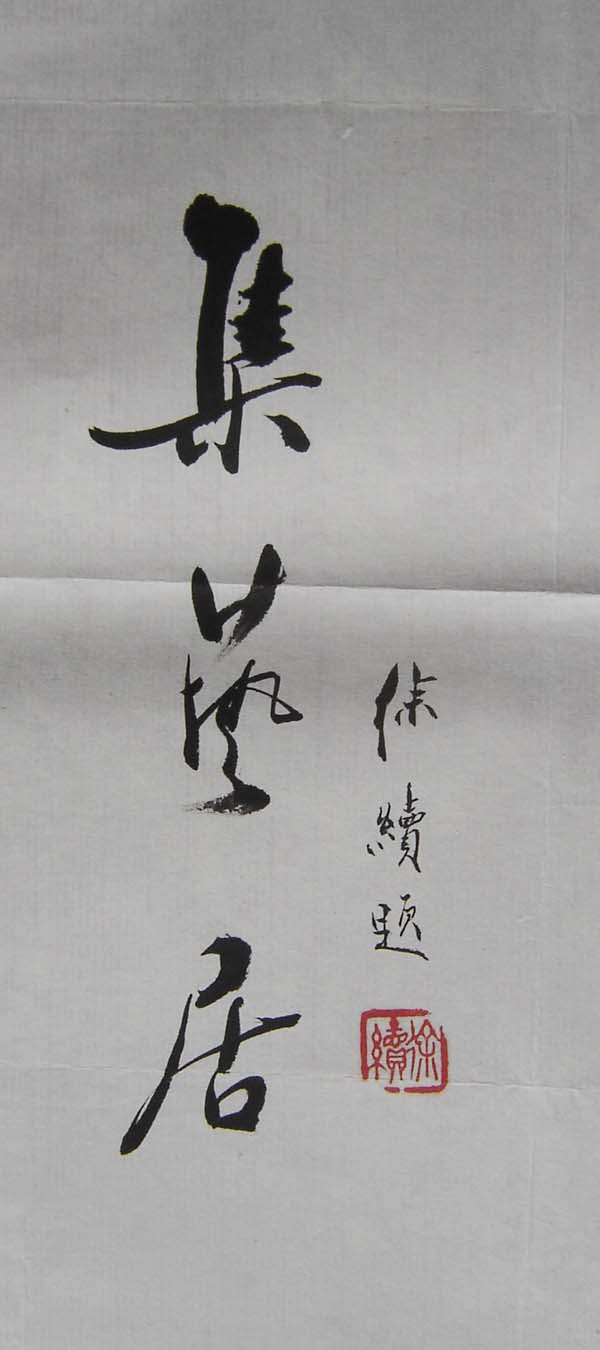 集藝居
徐續題
徐續